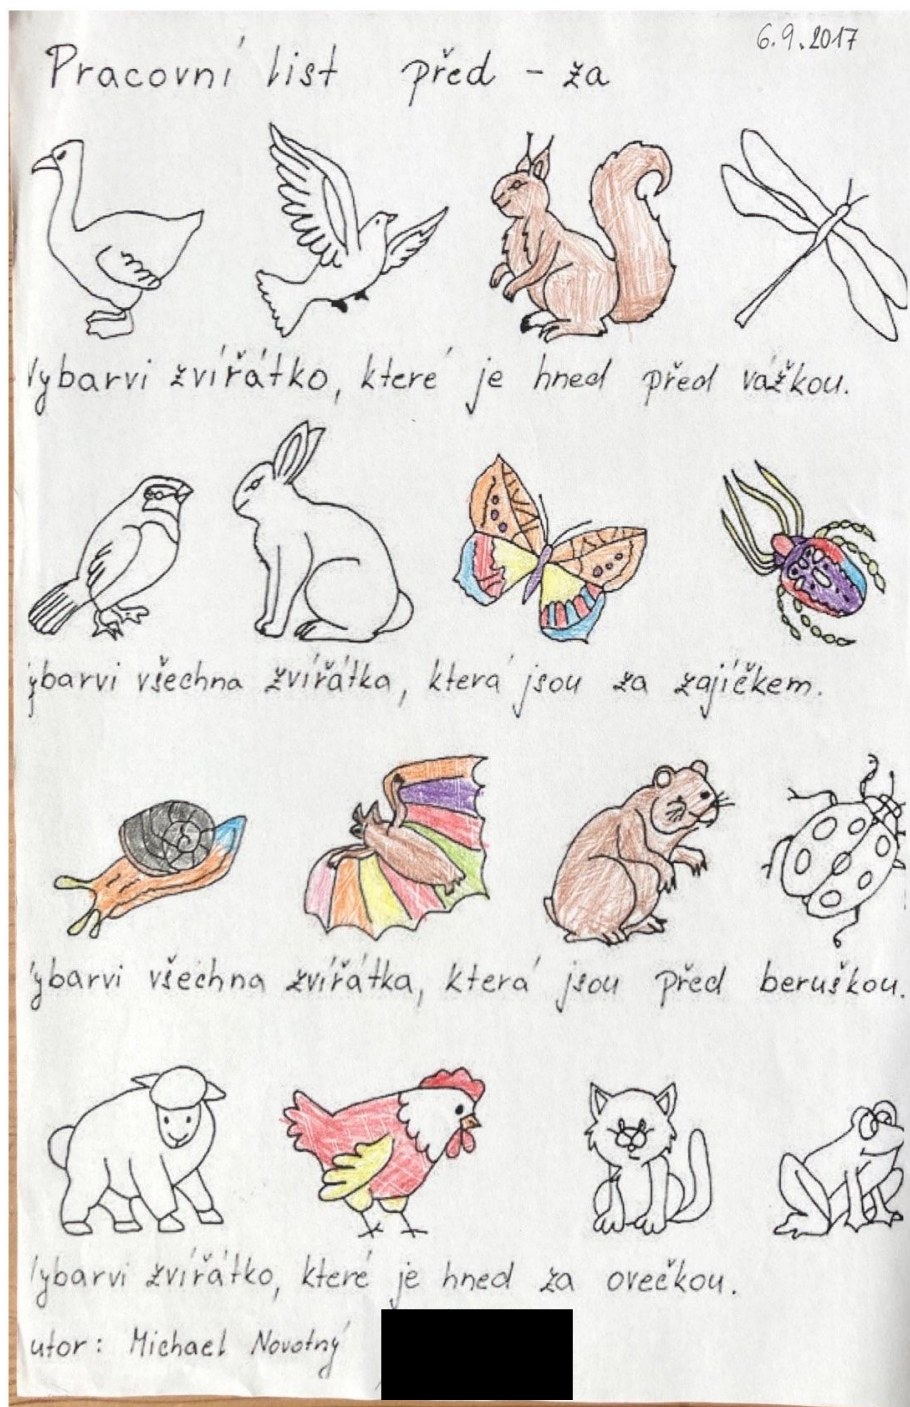 6.9.2017
Pracovní list před - za
Vybarvi zvířátko, které je hned před vážkou.
ybarvi všechna zvířátka, která jsou za zajíčkem.
ybarvi všechna zvířátka, která jsou před beruškou.
Vybarvi zvířátko, které je hned za ovečkou.
utor: Michael Novotný